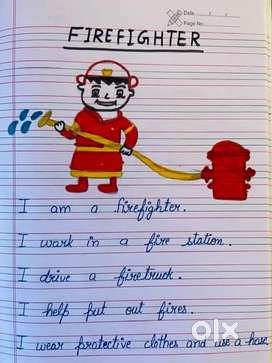 Date: / /
Page No:
FIREFIGHTER
I am a firefighter.
I work in a fire station.
I drive a firetruck.
I help put out fires.
I wear protective clothes and use a hose
olx